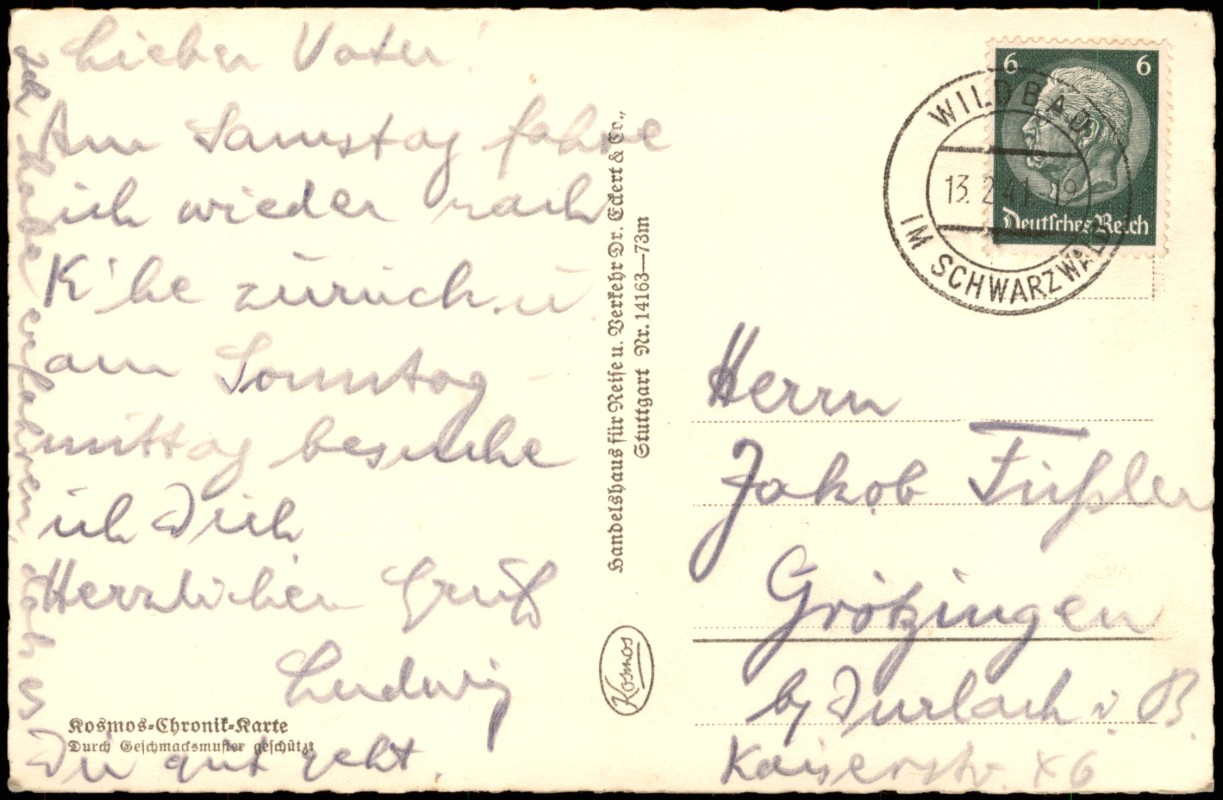 Lieber Vater!
Am Samstag fahre
ich wieder nach
K'he zurück u.
am Sonntag-
mittag besuche
ich Dich
Herzlichen Gruß
Ludwig
Ich habe erfahren, daß es
Dir gut geht.
Kosmos-Chronik-Karte
Durch Geschmacksmuster geschützt
Handelshaus für Reise u. Verkehr Dr. Eckert & Co.,
Stuttgart Nr. 14163—73m
Kosmos
6 6
Deutsches Reich
WILDBAD
13.2.41
IM SCHWARZWALD
Herrn
Jakob Füßler
Grötzingen
b/ Durlach i. B.
Kaiserstr. 86